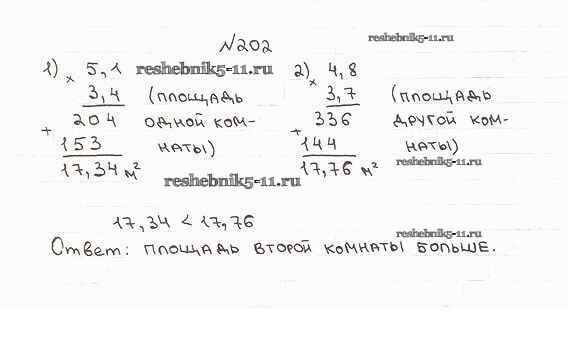 №202 reshebnik5-11.ru
1) × 5,1 reshebnik5-11.ru 2) × 4,8
3,4 (площадь 3,7 (площадь
+ 204 одной ком- + 336 другой ком-
153 наты) 144 наты)
17,34 м² 17,76 м² reshebnik5-11.ru
reshebnik5-11.ru
17,34 < 17,76 reshebnik5-11.ru
Ответ: площадь второй комнаты больше.